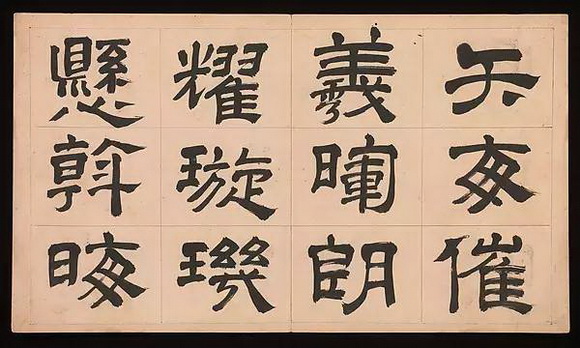 矢每催
羲暉朗
耀璇璣
懸斡晦